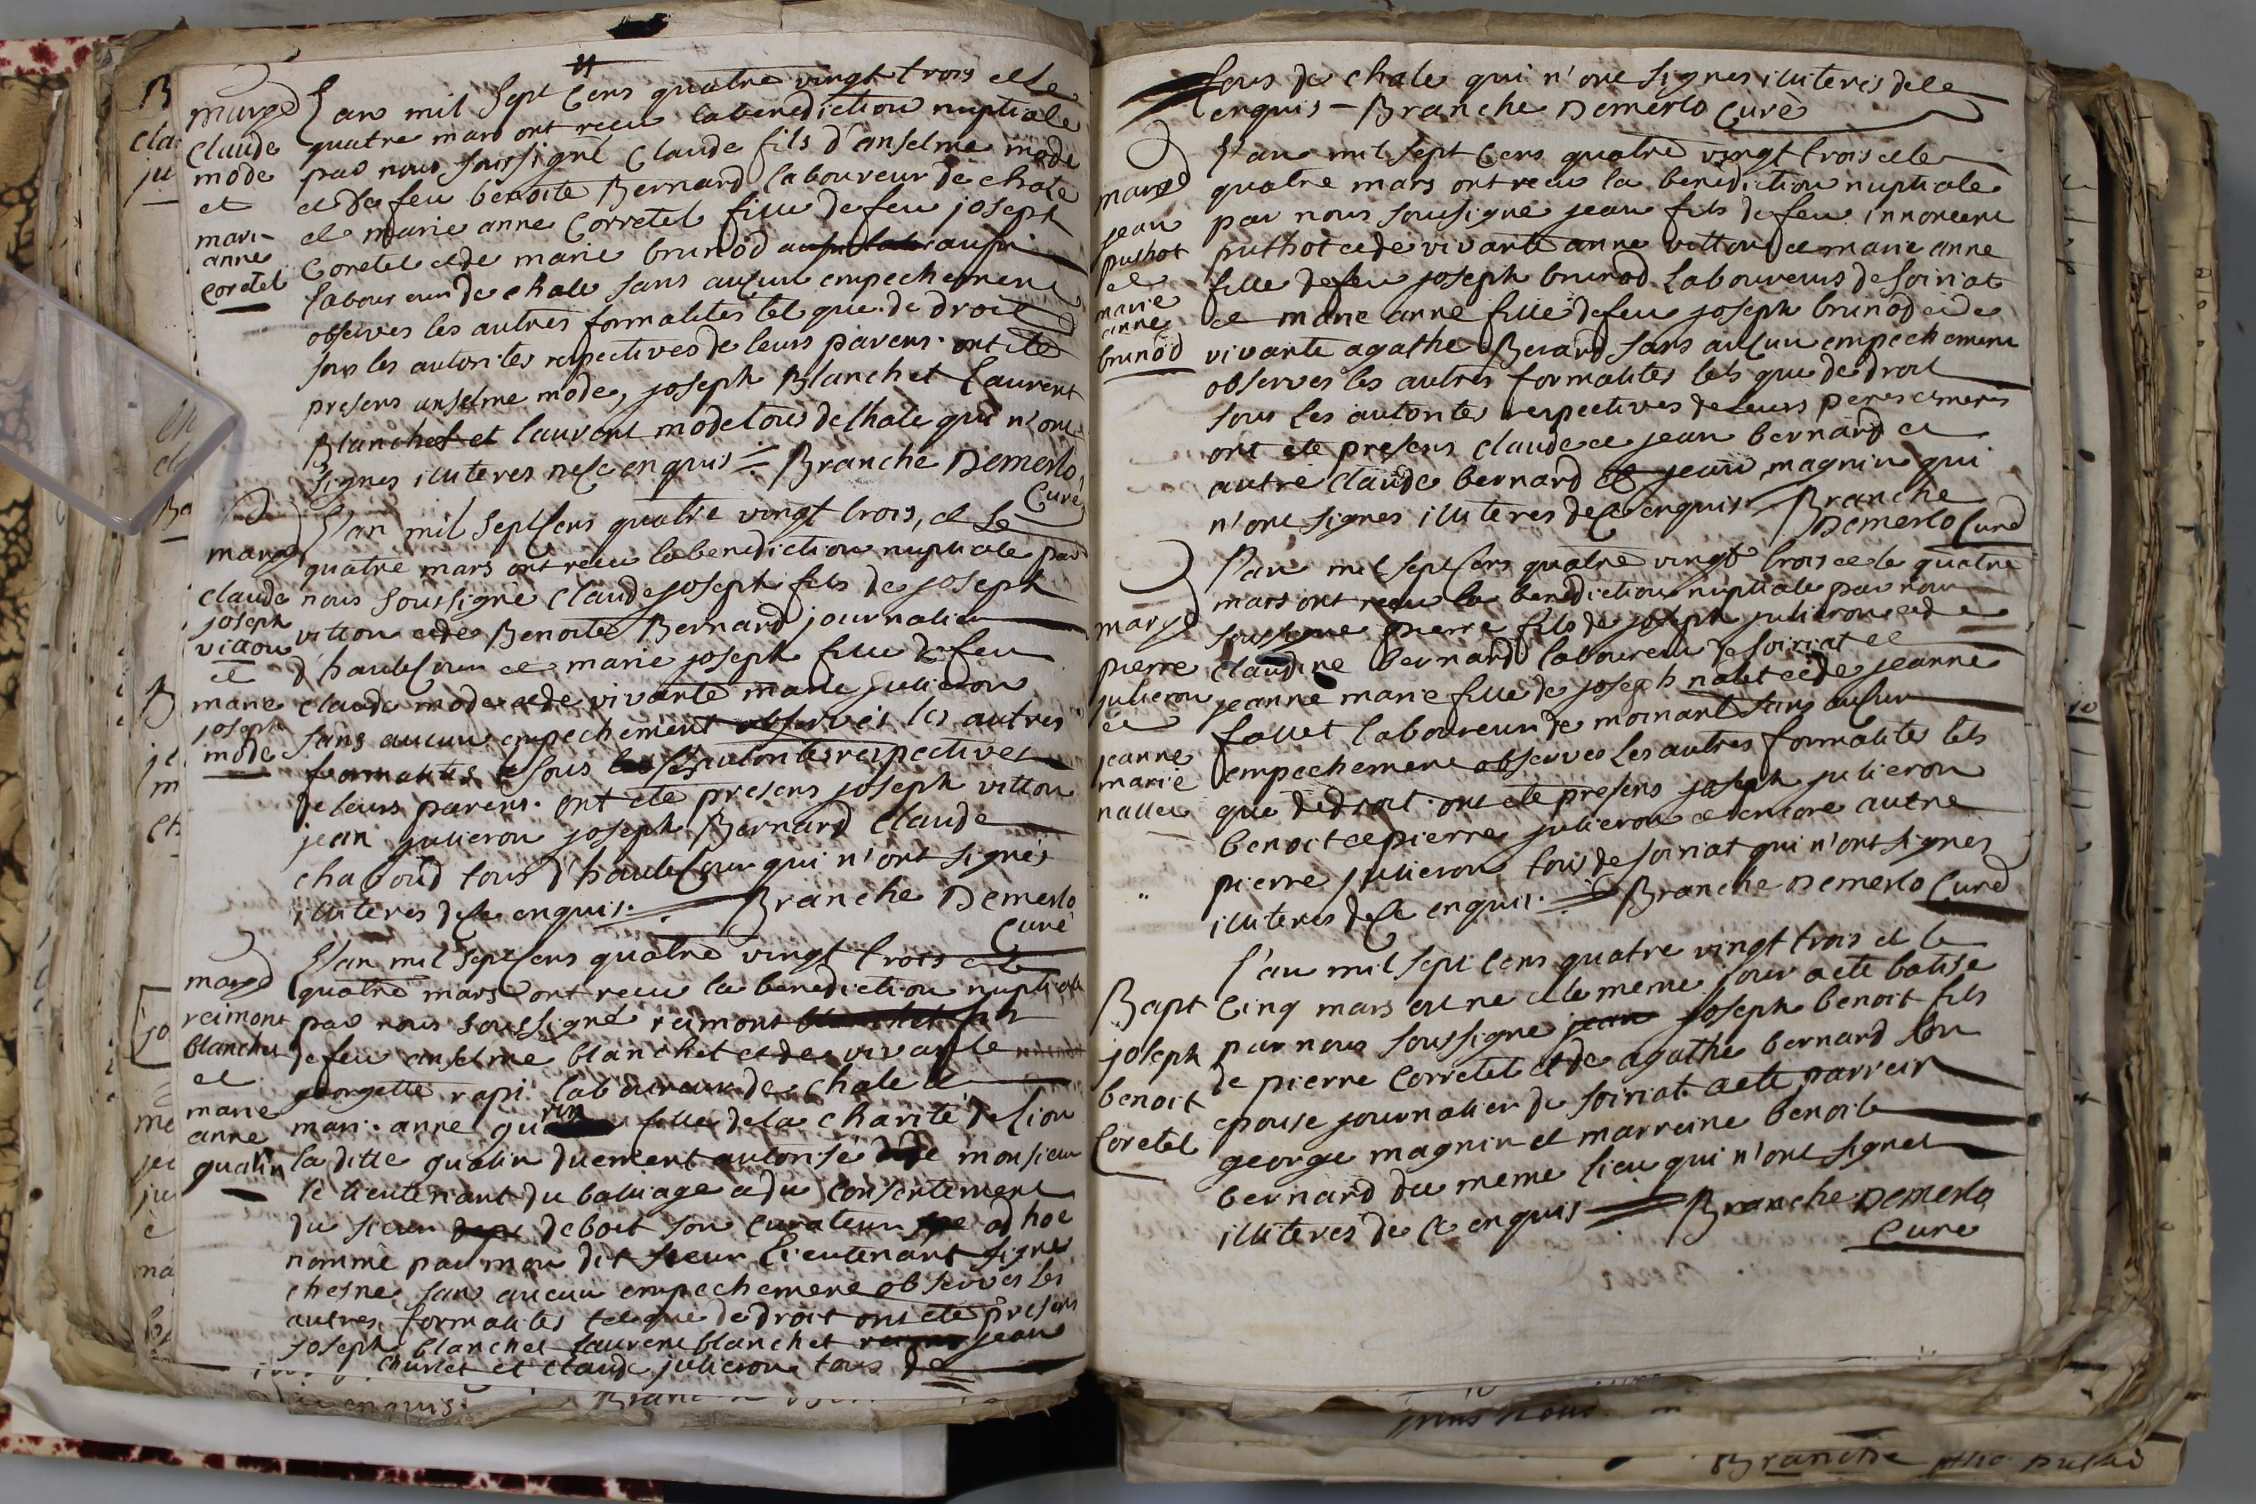 margé
Claude
mode
et
mari-
anne
coretel
L'an mil sept cens quatre vingt trois et le
quatre mars ont recu la benediction nuptiale
par nous soussigné Claude fils d'anselme mode
et de feu benoite Bernard laboureur de chale
et marie anne Corretel fille de feu joseph
Coretel et de marie brunod aussi
laboureur de chale sans aucun empechement
observes les autres formalites tel que de droit
sous les autorites respectives de leurs parens. ont ete
presens anselme mode, joseph Blanchet laurent
Blanchet et laurent mode tous de chale qui n'ont
signes illiteres de ce enquis Branche Demerlo
Curé
claude
joseph
vitton
et
marie
joseph
mode
L'an mil sept cens quatre vingt trois, et le
quatre mars ont recu la benediction nuptiale par
nous soussigné claude joseph fils de joseph
vitton et de Benoite Bernard journalier
d'hautecour et marie joseph fille de feu
claude mode et de vivante marie julieron
sans aucun empechement observés les autres
formalites et sous les autorites respectives
de leurs parens. ont ete presens joseph vitton
jean julieron joseph Bernard Claude
chaboud tous d'hautecour qui n'ont signés
illiteres de ce enquis. Branche Demerlo
Curé
reimont
blanchet
et
marie
anne
quatin
L'an mil sept cens quatre vingt trois et le
quatre mars ont recu la benediction nuptiale
par nous soussigné reimont blanchet fils
de feu anselme blanchet et de vivante
georgette rapi. laboureur de chale et
mari-anne fille de la charité de lion
la ditte quatin duement autorisé de monsieur
le lieutenant du baliage et du consentement
du sieur deboit son curateur ad hoc
nommé par mon dit sieur lieutenant signé
chesne sans aucun empechement observes les
autres formalites tel que de droit ont ete presens
joseph blanchet laurent blanchet jean
churlet et claude julieron tous de
tous de chale qui n'ont signes illiteres de ce
enquis - Branche Demerlo Curé
jean
puthot
et
marie
anne
brunod
L'an mil sept cens quatre vingt trois et le
quatre mars ont recu la benediction nuptiale
par nous soussigné jean fils de feu innocent
puthot et de vivante anne vitton et marie anne
fille de feu joseph brunod laboureurs de soiriat
et marie anne fille de feu joseph brunod et de
vivante agathe Berard sans aucun empechement
observes les autres formalites tels que de droit
sous les autorites respectives de leurs peres et meres
ont ete presens claude et jean bernard et
autre claude bernard et jean magnin qui
n'ont signes illiteres de ce enquis Branche
Demerlo Curé
pierre
julieron
et
jeanne
marie
nallet
L'an mil sept cens quatre vingt trois et le quatre
mars ont recu la benediction nuptiale par nous
soussigné pierre fils de joseph julieron et de
claudine bernard laboureur de soiriat et
jeanne marie fille de joseph nalet et de jeanne
follet laboureur de moinant sans aucun
empechement observes les autres formalites tels
que de droit. ont ete presens joseph julieron
benoit et pierre julieron et encore autre
pierre julieron tous de soiriat qui n'ont signes
illiteres de ce enquis. Branche Demerlo Curé
Bapt
joseph
benoit
Coretel
l'an mil sept cens quatre vingt trois et le
Cinq mars est ne et le meme jour a ete batisé
par nous soussigné jean joseph benoit fils
de pierre Corretel et de agathe bernard son
epouse journalier de soiriat a ete parrein
george magnin et marreine benoite
bernard du meme lieu qui n'ont signes
illiteres de ce enquis Branche Demerlo
Curé